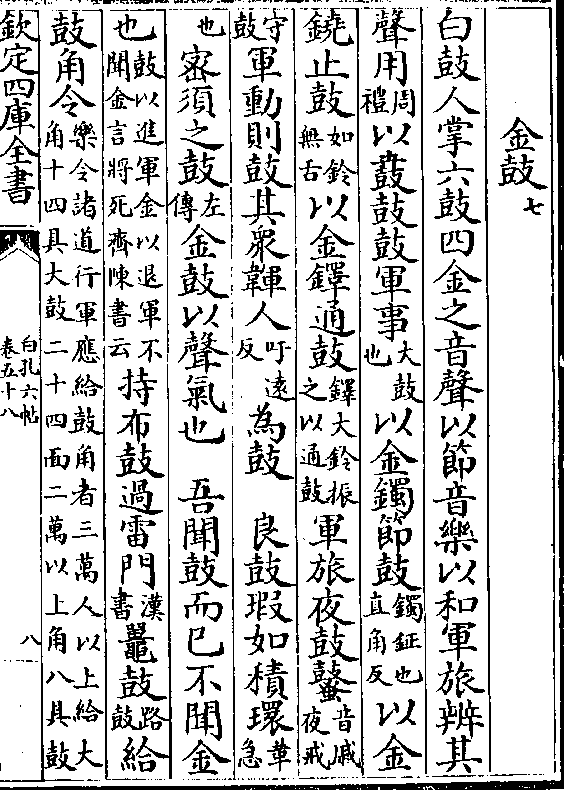 金鼓七
白鼓人掌六鼓四金之音聲以節音樂以和軍旅辨其
聲用周禮以鼖鼓鼓軍事大鼓也以金鐲節鼓鐲鉦也直角反以金
鐃止鼓如鈴無舌以金鐸通鼓鐸大鈴振之以通鼓軍旅夜鼓鼜音戚夜戒
守鼓軍動則鼓其衆韗人吁逺反為鼓 良鼓瑕如積環革急
也密須之鼓左傳金鼓以聲氣也 吾聞鼓而已不聞金
也鼓以進軍金以退軍不聞金言將死齊陳書云持布鼓過雷門漢書鼉鼓路鼓給
鼓角令樂令諸道行軍應給鼓角者三萬人以上給大角十四具大鼓二十四面二萬以上角八具鼓
欽定四庫全書
白孔六帖
卷五十八
八